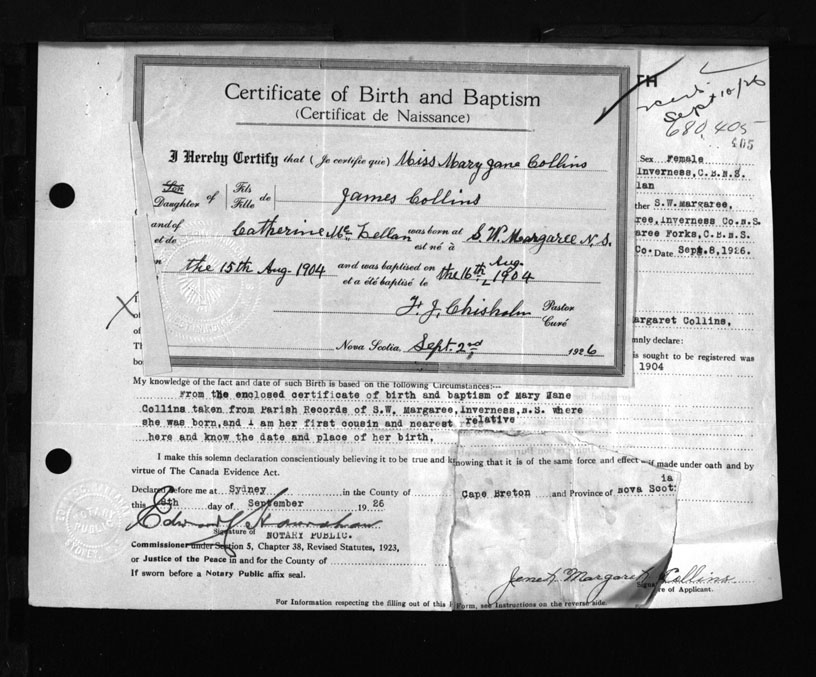 TH
Sept 10/26
680,405
405
Certificate of Birth and Baptism
(Certificat de Naissance)
I Hereby Certify that (Je certifie que) Miss Mary Jane Collins
Son
Daughter of
Fils
Fille de
James Collins
and of
et de
Catherine McLellan was born at
est né à
S.W. Margaree N.S.
the 15th Aug. 1904 and was baptised on
et a été baptisé to
the 16th Aug. 1904
F. J. Chisholm Pastor
Curé
Nova Scotia, Sept. 2nd 1926
Sex Female
Inverness, C.B.N.S.
lan
ther S.W.Margaree,
ree, Inverness Co.N.S.
aree Forks, C.B.N.S.
Co. Date Sept.8,1926.
I
of
of
argaret Collins,
Th
mnly declare:
bo
is sought to be registered was
1904
My knowledge of the fact and date of such Birth is based on the following Circumstances:—
From the enclosed certificate of birth and baptism of Mary Jane
Collins taken from Parish Records of S.W. Margaree, Inverness, N.S. where
she was born, and I am her first cousin and nearest relative
here and know the date and place of her birth,
I make this solemn declaration conscientiously believing it to be true and knowing that it is of the same force and effect as if made under oath and by
virtue of The Canada Evidence Act.
Declared before me at Sydney in the County of Cape Breton and Province of Nova Scotia
this 8th day of September 1926
Signature of
NOTARY PUBLIC.
Commissioner under Section 5, Chapter 38, Revised Statutes, 1923,
or Justice of the Peace in and for the County of
If sworn before a Notary Public affix seal.
Margaret Collins
Signature of Applicant.
For Information respecting the filling out of this Form, see Instructions on the reverse side.